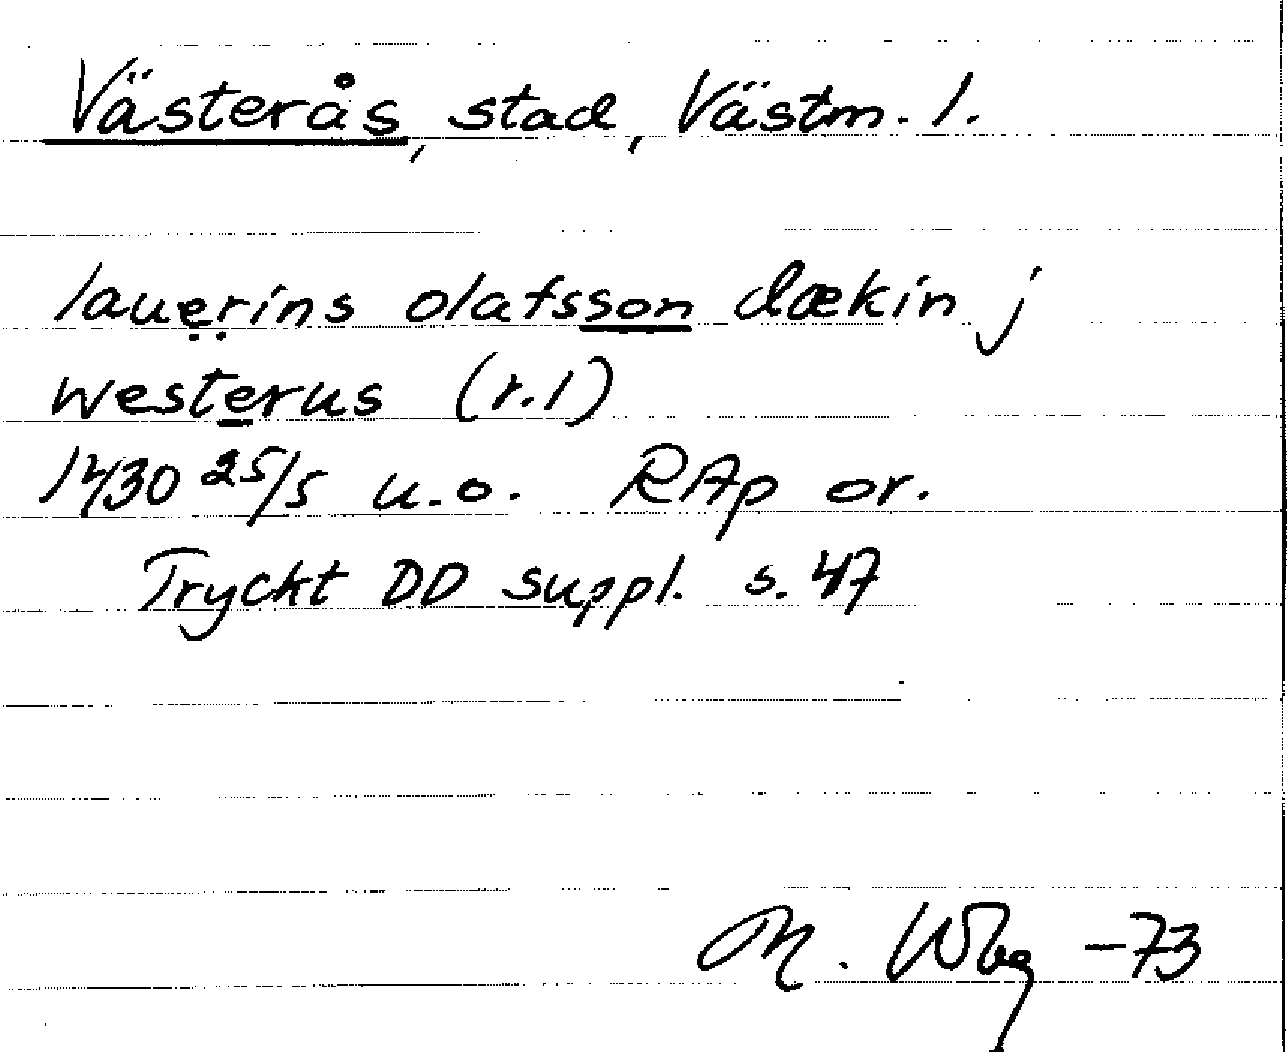 Västerås, stad, Västm. l.
lauerins olafsson dækin j
westerus (r.1)
1430 25/5 u.o. RAp or.
Tryckt DD suppl. s. 47
M. Wbg -73